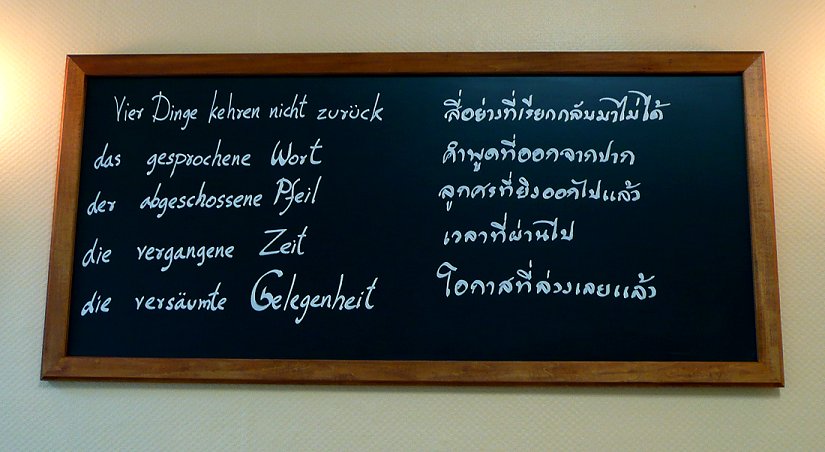 Vier Dinge kehren nicht zurück
das gesprochene Wort
der abgeschossene Pfeil
die vergangene Zeit
die versäumte Gelegenheit
สี่อย่างที่เรียกกลับมาไม่ได้
คำพูดที่ออกจากปาก
ลูกศรที่ยิงออกไปแล้ว
เวลาที่ผ่านไป
โอกาสที่ล่วงเลยแล้ว